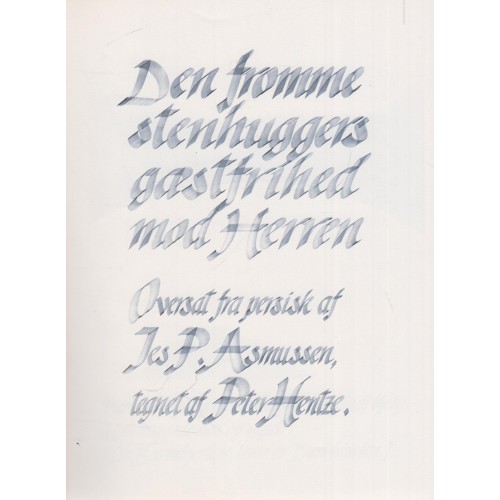 Den fromme
stenhuggers
gæstfrihed
mod Herren
Oversat fra persisk af
Jes P. Asmussen,
tegnet af Peter Hentze.